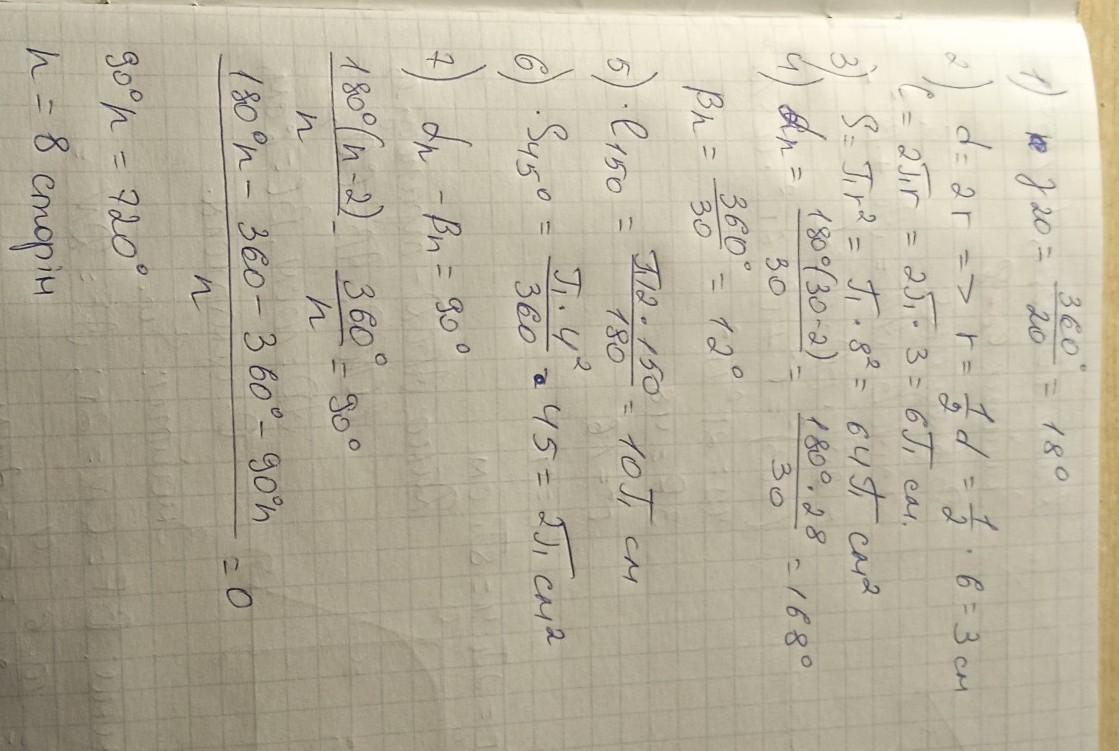 1) γ20 = 360°/20 = 18°
2) d = 2r => r = 1/2 d = 1/2 · 6 = 3 см
C = 2πr = 2π · 3 = 6π см.
3) S = πr² = π · 8² = 64π см²
4) αn = 180°(30-2)/30 = 180° · 28/30 = 168°
βn = 360°/30 = 12°
5) · l150 = π12 · 150/180 = 10π см
6) · S45° = π · 4²/360 · 45 = 2π см²
7) αn - βn = 90°
180°(n-2)/n - 360°/n = 90°
180°n - 360 - 360° - 90°n/n = 0
90°n = 720°
n = 8 сторін